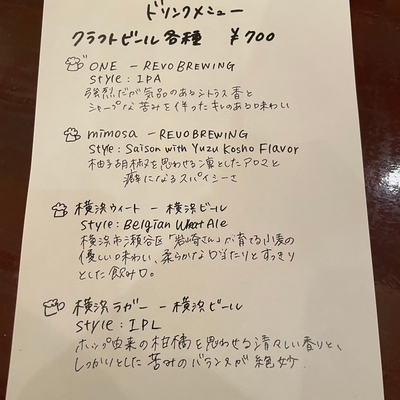 ドリンクメニュー
クラフトビール各種 ¥700
ONE － REVO BREWING
Style : IPA
強烈だが気品のあるシトラス香と
シャープな苦みを伴ったキレのある味わい
mimosa － REVO BREWING
Style : Saison with Yuzu Kosho Flavor
柚子胡椒を思わせる凛としたアロマと
癖になるスパイシーさ
横浜ウィート － 横浜ビール
Style : Belgian Wheat Ale
横浜市瀬谷区「岩崎さん」が育てる小麦の
優しい味わい、柔らかな口当たりとすっきり
とした飲み口。
横浜ラガー － 横浜ビール
Style : IPL
ホップ由来の柑橘を思わせる清々しい香りと、
しっかりとした苦みのバランスが絶妙.